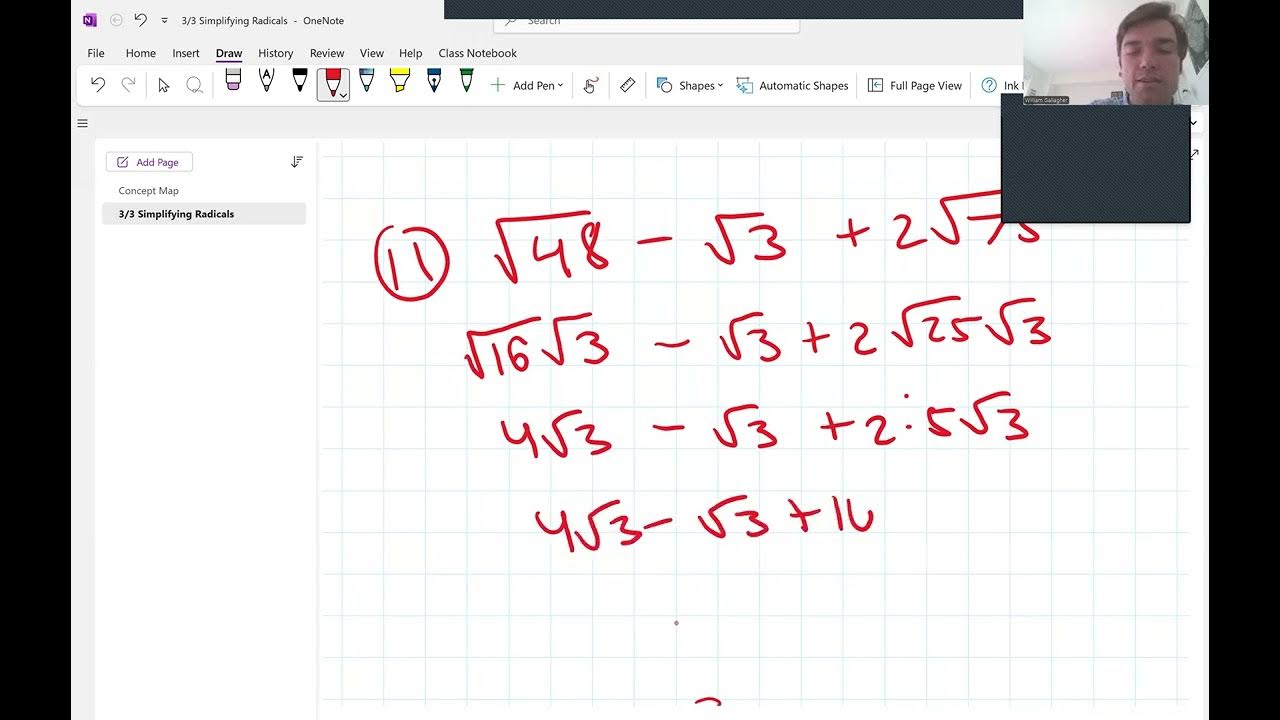 3/3 Simplifying Radicals - OneNote
Search
File Home Insert Draw History Review View Help Class Notebook
Add Pen Shapes Automatic Shapes Full Page View Ink
William Gallagher
Add Page
Concept Map
3/3 Simplifying Radicals
11 √48 - √3 + 2√75
√16√3 - √3 + 2√25√3
4√3 - √3 + 2·5√3
4√3 - √3 + 10